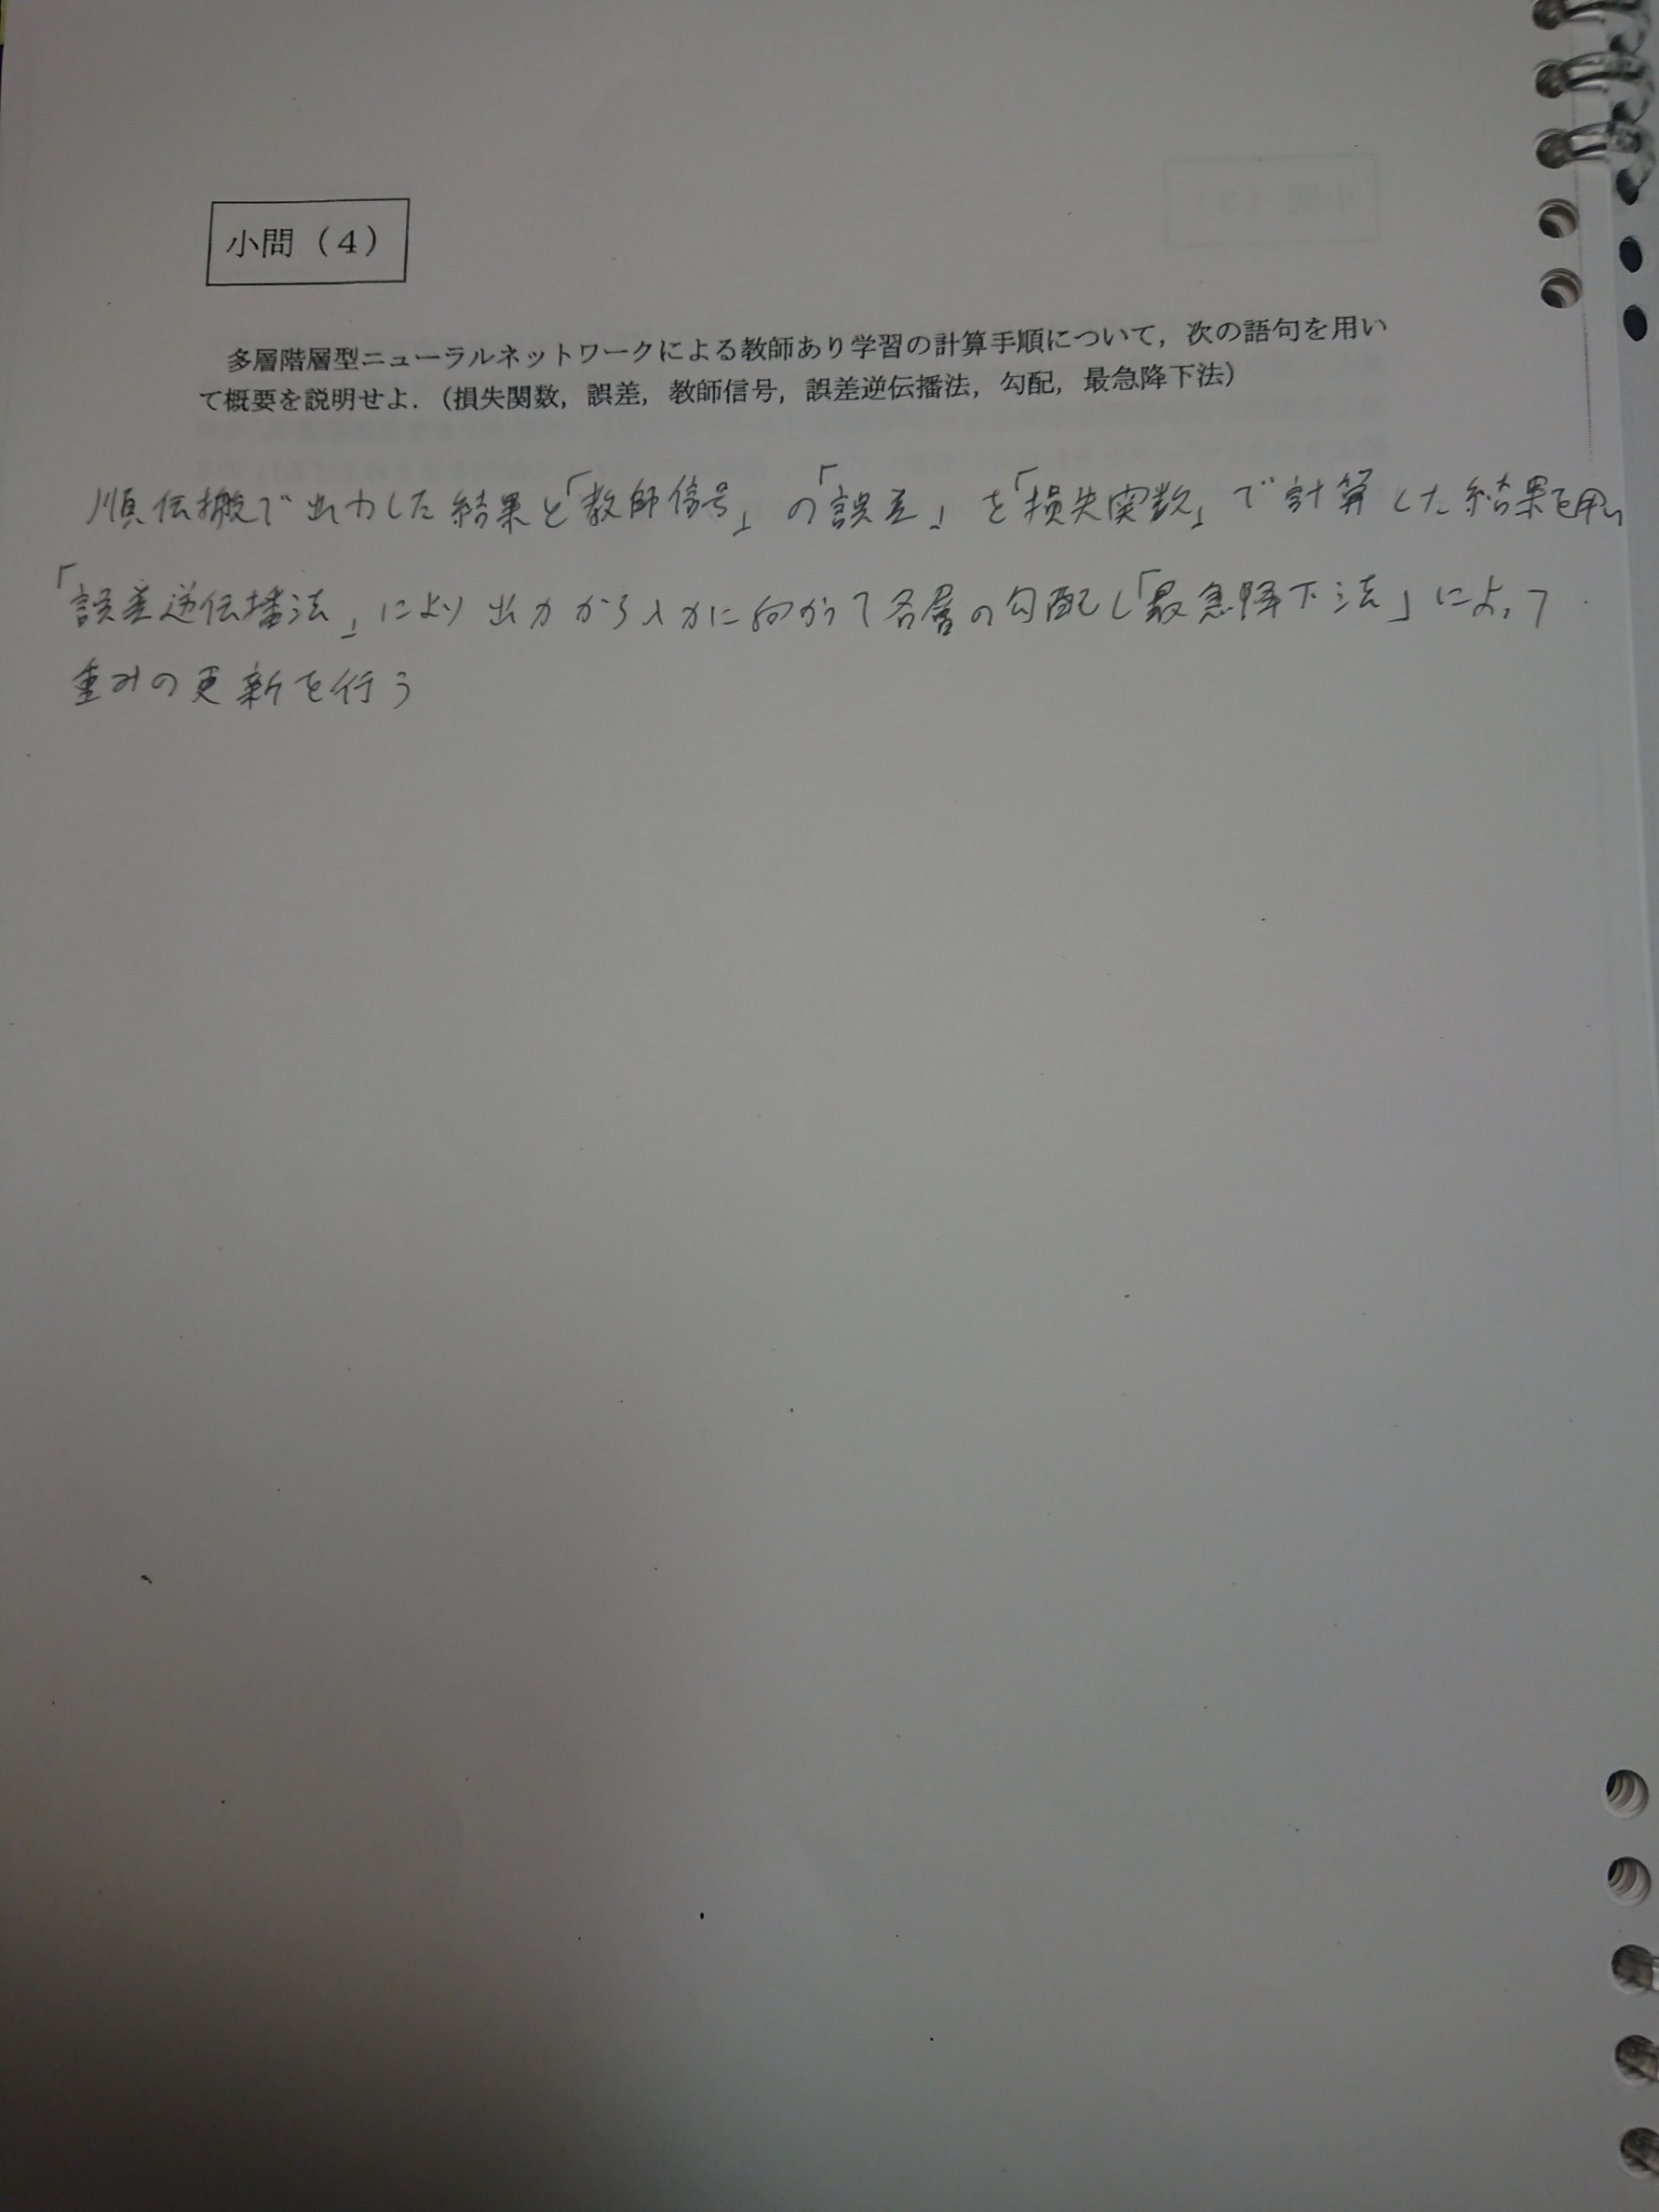 小問（４）
多層階層型ニューラルネットワークによる教師あり学習の計算手順について，次の語句を用い
て概要を説明せよ．（損失関数，誤差，教師信号，誤差逆伝播法，勾配，最急降下法）
順伝搬で出力した結果と「教師信号」の「誤差」を「損失実数」で計算した結果を用い
「誤差逆伝播法」により出力から入力に向かって各層の勾配し「最急降下法」によって
重みの更新を行う